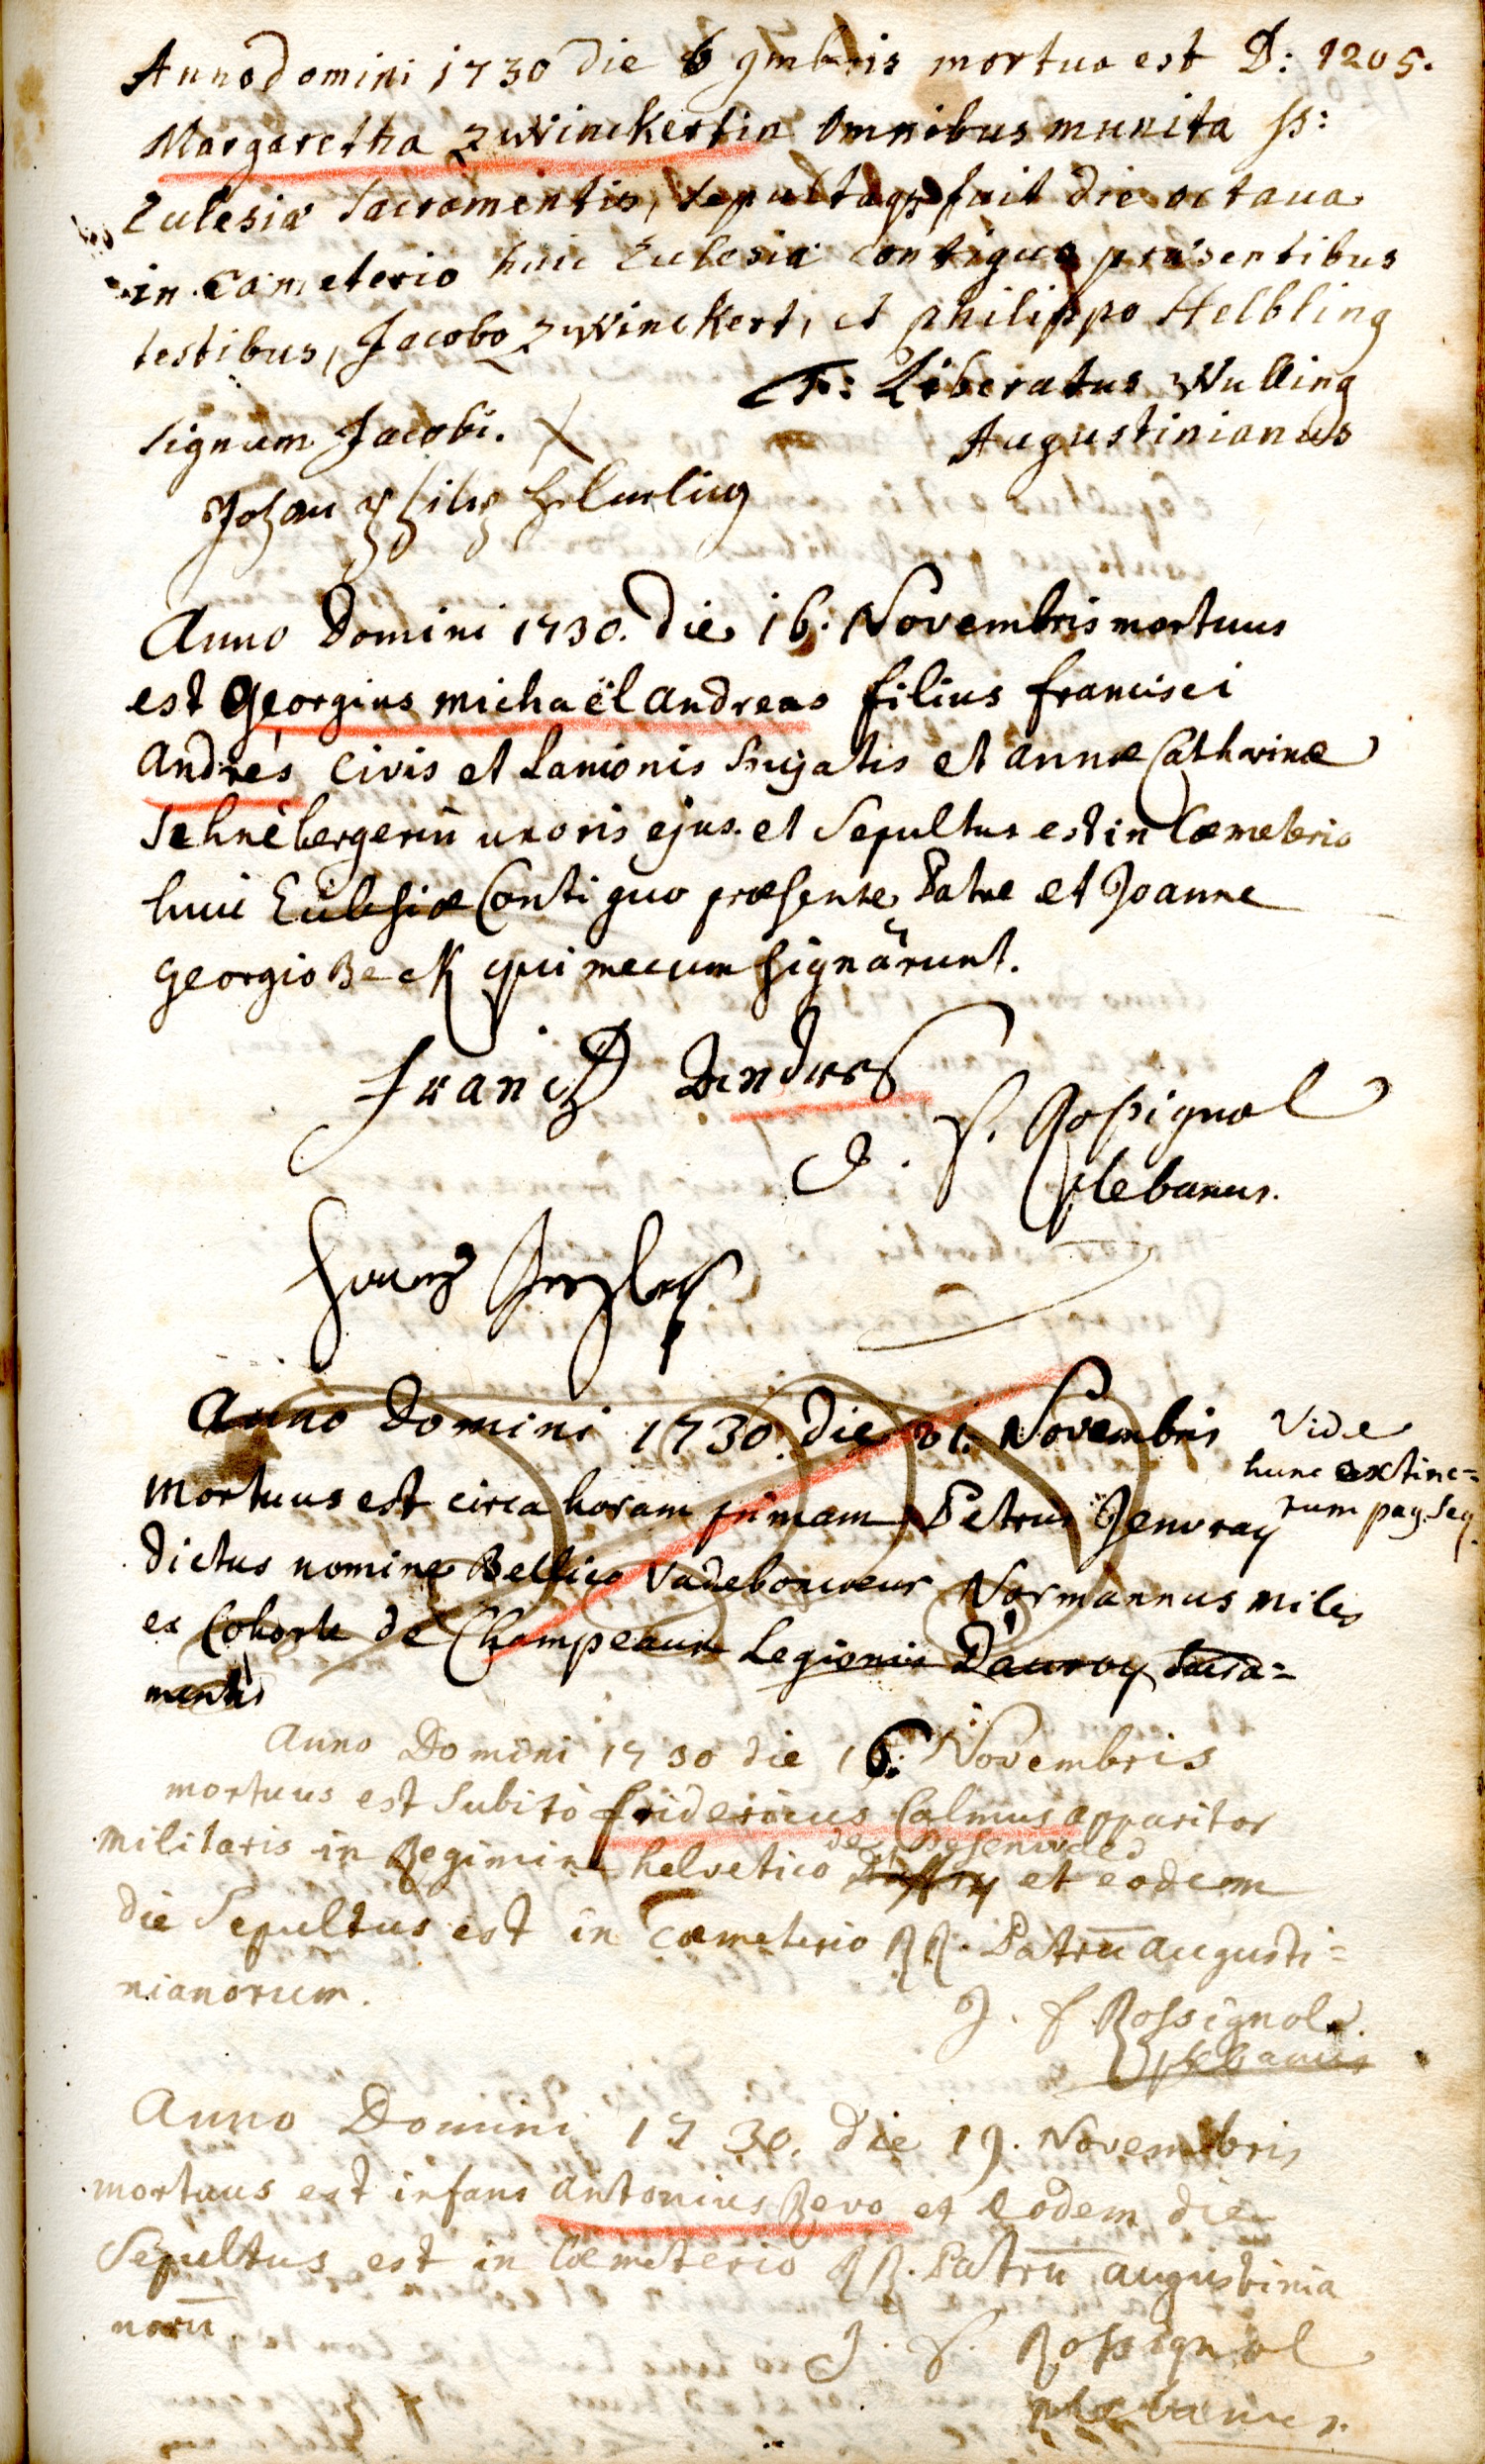 Anno domini 1730 die 6 9mbris mortua est D: 1205.
Margaretha Zwinckertin omnibus munita ss:
Eclesiæ Sacramentis, sepultaq3 fuit die octava
in cæmeterio huic Eclesiæ contiguo præsentibus
testibus, Jacobo Zwinckert, et philippo Helbling
F: Liberatus Wulling
Signum Jacobi. X
Augustinianus
Johan philip
Anno Domini 1730. die 16. Novembris mortuus
est Georgius michaël andreas filius francisci
andrés civis et Lanionis hujatis et annæ Catharinæ
Schnêbergerin uxoris ejus. et Sepultus est in Cœmeterio
huic Eclesiæ Contiguo præsente Patre et Joanne
georgio Beck qui mecum signârunt.
frantz Andres
J. f. Rossignol
plebanus.
Anno Domini 1730. die 21. Novembris
Vide
hunc extinc=
tum pag. seq.
mortuus est circa horam primam Petrus Jenvray
dictus nomine Bellico Vadeboncoeur Normannus miles
ex Cohorte de Champeaux Legionis D'auroy sacra=
mentis
Anno Domini 1730 die 16: Novembris
mortuus est Subitò fridericus Calmus apparitor
militaris in Regimine helvetico et eodem
die Sepultus est in Cœmeterio RR. Patrū augusti=
nianorum.
J. f. Rossignol.
plebanus
Anno Domini 1730. die 19. Novembris
mortuus est infans antonius Revo et eodem die
Sepultus est in Cœmeterio RR. Patrū augustinia
norū
J. f. Rossignol
plebanus.